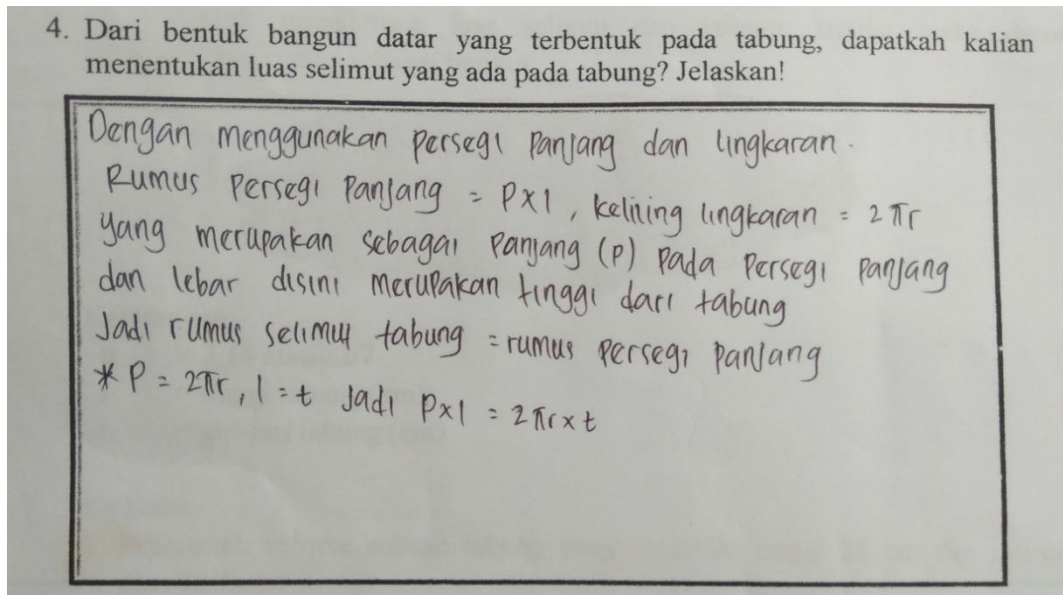 4. Dari bentuk bangun datar yang terbentuk pada tabung, dapatkah kalian
menentukan luas selimut yang ada pada tabung? Jelaskan!
Dengan menggunakan persegi panjang dan lingkaran.
Rumus persegi panjang = p x l, keliling lingkaran = 2πr
yang merupakan sebagai panjang (p) pada persegi panjang
dan lebar disini merupakan tinggi dari tabung
Jadi rumus selimut tabung = rumus persegi panjang
* p = 2πr, l = t Jadi p x l = 2πr x t